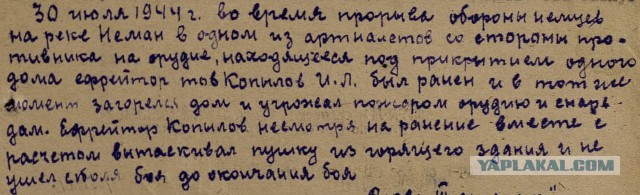 30 июля 1944 г. во время прорыва обороны немцев
на реке Неман в одном из артналетов со стороны про-
тивника на орудие, находящееся под прикрытием одного
дома ефрейтор тов Копылов И.Л. был ранен и в тот же
момент загорелся дом и угрожал пожаром орудию и снаря-
дам. Ефрейтор Копылов несмотря на ранение вместе с
расчетом вытаскивал пушку из горящего здания и не
ушел с поля боя до окончания боя
YAPLAKAL.COM